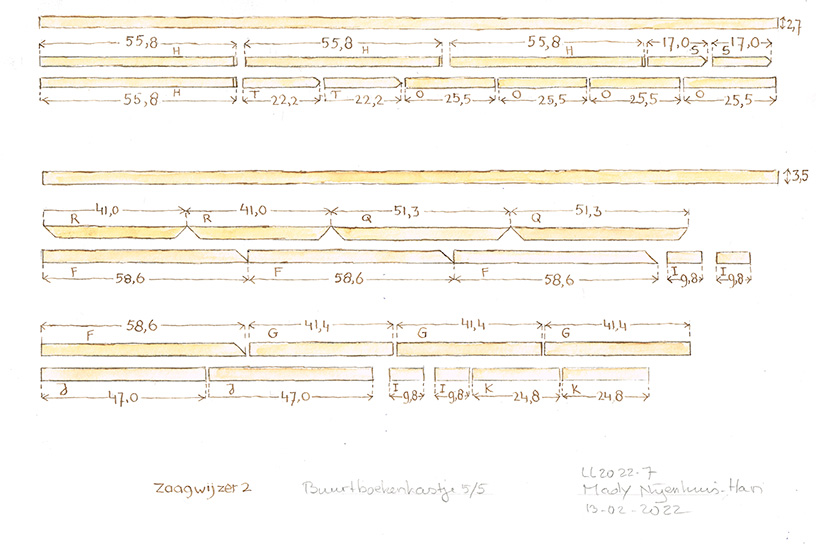 2,7
55,8 55,8 55,8 17,0 17,0
H H H S S
H T T O O O O
55,8 22,2 22,2 25,5 25,5 25,5 25,5
3,5
41,0 41,0 51,3 51,3
R R Q Q
F F F I I
58,6 58,6 58,6 9,8 9,8
58,6 41,4 41,4 41,4
F G G G
J J I I K K
47,0 47,0 9,8 9,8 24,8 24,8
Zaagwijzer 2 Buurtboekenkastje 5/5
LL2022-7
Mady Nijenhuis-Hari
13-02-2022